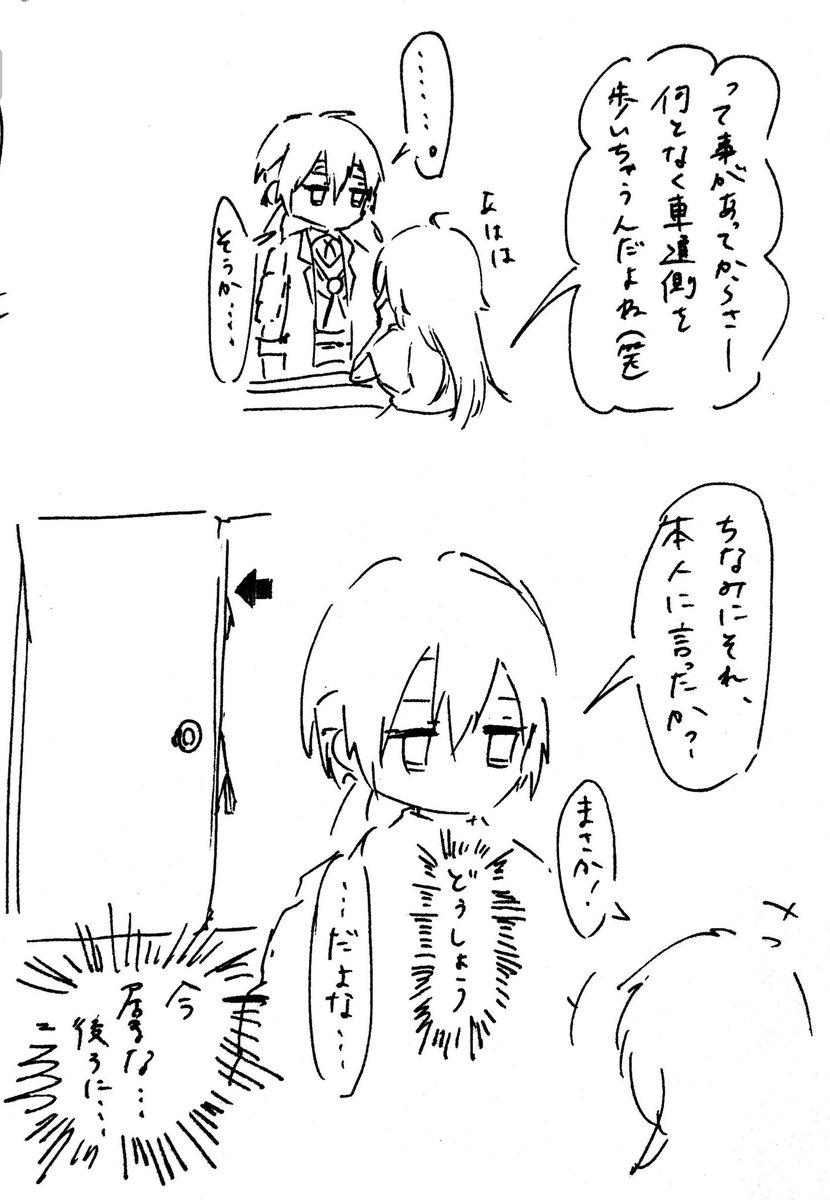 って事があってからさー
何となく車道側を
歩いちゃうんだよね(笑)
あはは
……。
そうか…
ちなみにそれ、
本人に言ったか？
まさか！
どうしよう
…だよな…
今
居るな…
後ろに…